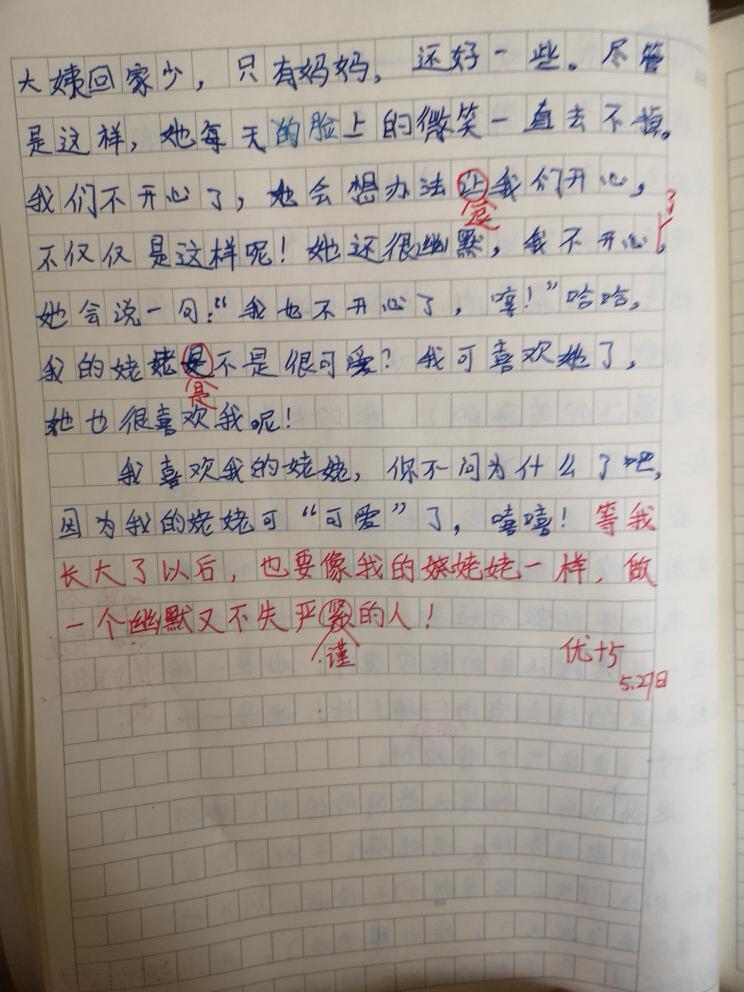 大姨回家少，只有妈妈，还好一些。尽管
是这样，她每天的脸上的微笑一直去不掉。
我们不开心了，她会想办法让我们开心，
逗
了
不仅仅是这样呢！她还很幽默，我不开心，
她会说一句：“我也不开心了，哼！”哈哈，
我的姥姥是不是很可爱？我可喜欢她了，
是
她也很喜欢我呢！
我喜欢我的姥姥，你不问为什么了吧，
因为我的姥姥可“可爱”了，嘻嘻！等我
长大了以后，也要像我的姥姥一样，做
一个幽默又不失严的人！
谨
优+5
5.27日